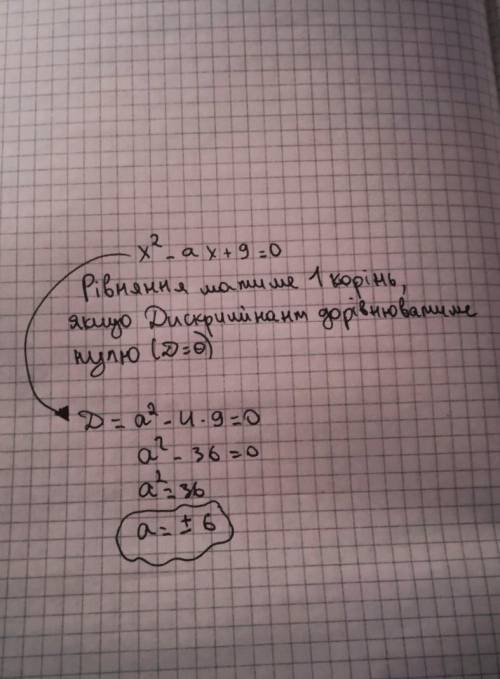 x² - ax + 9 = 0
Рівняння матиме 1 корінь,
якщо Дискримінант дорівнюватиме
нулю (D=0)
D = a² - 4·9 = 0
a² - 36 = 0
a² = 36
a = ± 6